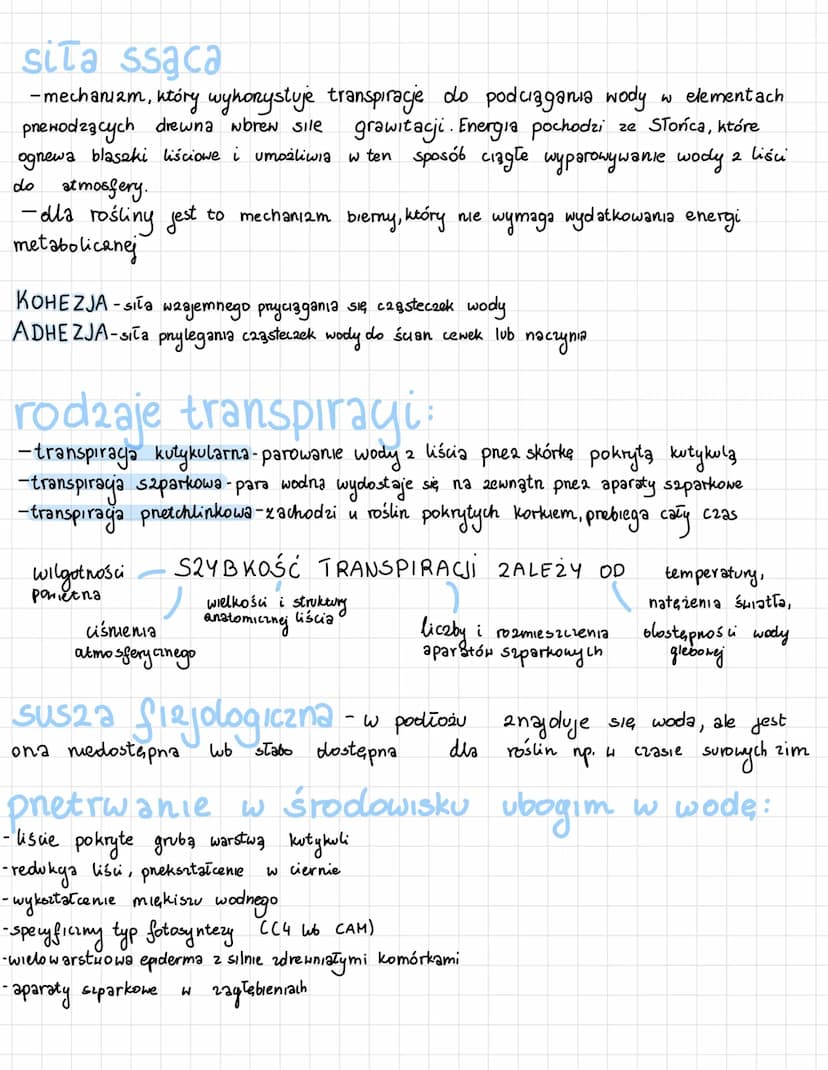 siła ssąca
-mechanizm, który wykorzystuje transpirację do podciągania wody w elementach
przewodzących drewna wbrew sile grawitacji. Energia pochodzi ze Słońca, które
ogrzewa blaszki liściowe i umożliwia w ten sposób ciągłe wyparowywanie wody z liści
do atmosfery.
-dla rośliny jest to mechanizm bierny, który nie wymaga wydatkowania energi
metabolicznej
KOHEZJA - siła wzajemnego przyciągania się cząsteczek wody
ADHEZJA - siła przylegania cząsteczek wody do ścian cewek lub naczynia
rodzaje transpiracji:
-transpiracja kutykularna - parowanie wody z liścia przez skórkę pokrytą kutykulą
-transpiracja szparkowa - para wodna wydostaje się na zewnątrz przez aparaty szparkowe
-transpiracja przetchlinkowa - zachodzi u roślin pokrytych korkiem, prebiega cały czas
wilgotności SZYBKOŚĆ TRANSPIRACJI ZALEŻY OD temperatury,
powietrza wielkości i struktury natężenia światła,
anatomicznej liścia
ciśnienia liczby i rozmieszczenia dostępności wody
atmosferycznego aparatów szparkowych glebowej
susza fizjologiczna - w podłożu znajduje się woda, ale jest
ona niedostępna lub słabo dostępna dla roślin np. w czasie surowych zim
przetrwanie w środowisku ubogim w wodę:
- liście pokryte grubą warstwą kutykuli
- redukcja liści, przekształcenie w ciernie
- wykształcenie miękiszu wodnego
- specyficzny typ fotosyntezy (C4 lub CAM)
- wielowarstwowa epiderma z silnie zdrewniałymi komórkami
- aparaty szparkowe w zagłębieniach